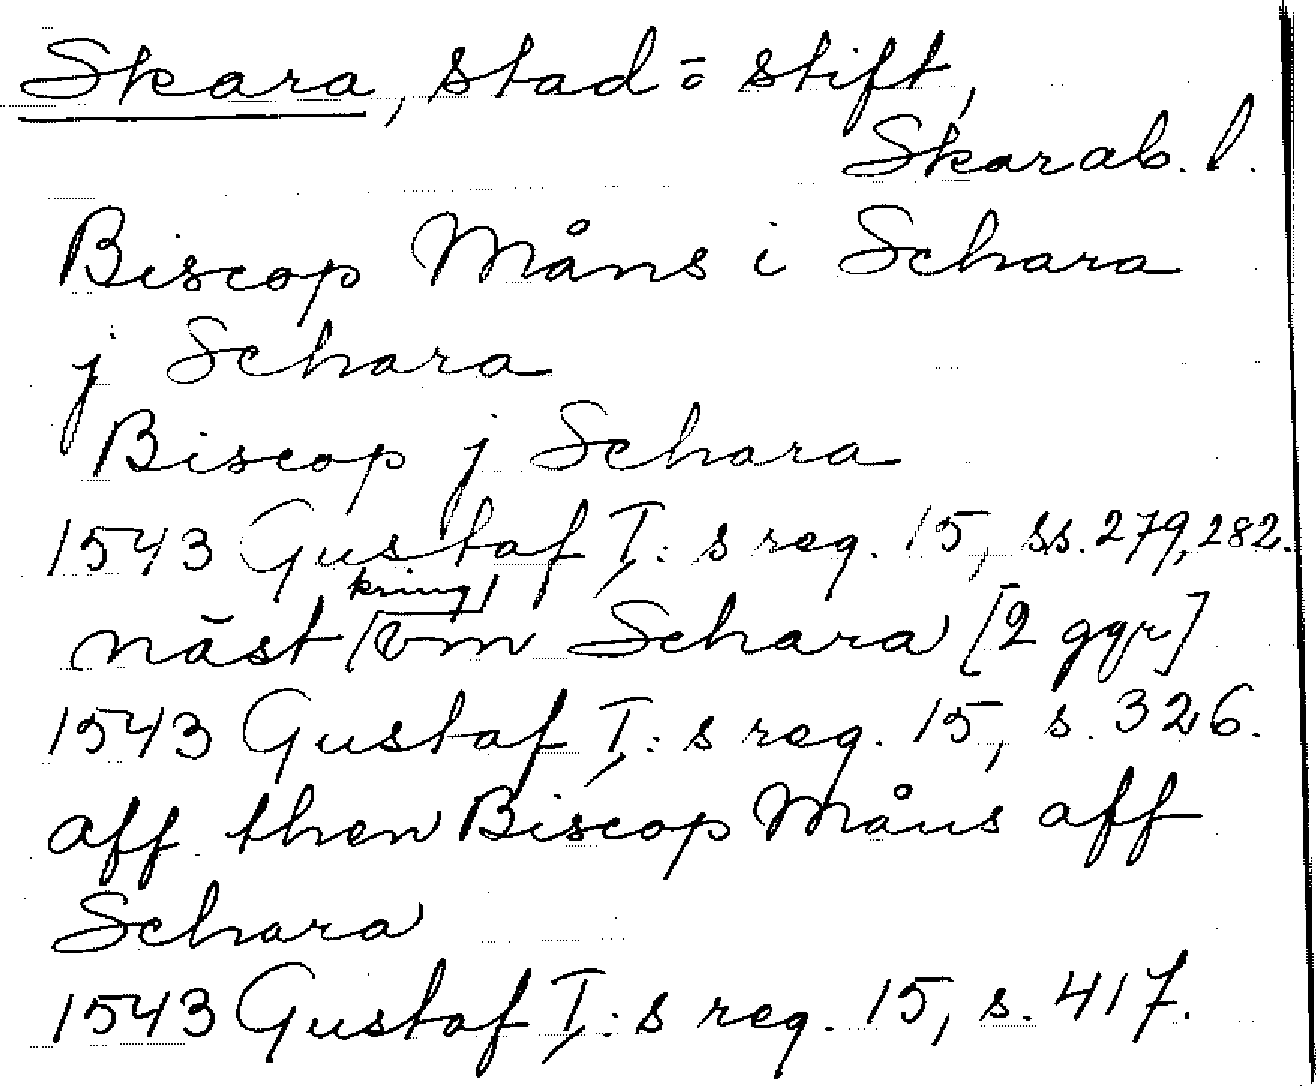 Skara, stad o stift,
Skarab. l.
Biscop Måns i Schara
j Schara
Biscop j Schara
1543 Gustaf I:s reg. 15, ss. 279, 282.
näst [kring] om Schara [2 ggr]
1543 Gustaf I:s reg. 15, s. 326.
aff then Biscop Måns aff
Schara
1543 Gustaf I:s reg. 15, s. 417.